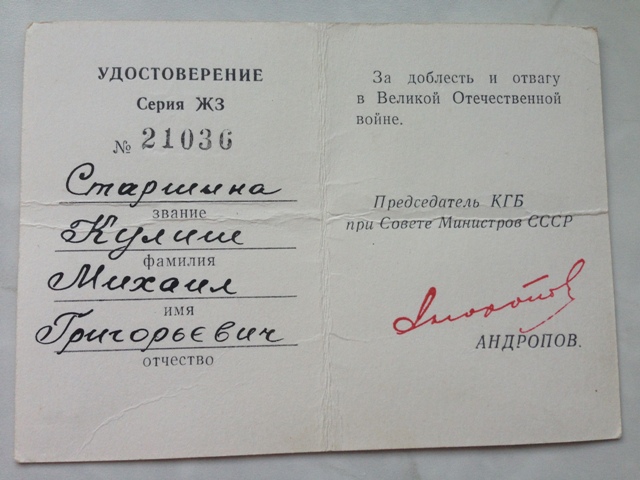 УДОСТОВЕРЕНИЕ
Серия ЖЗ
№ 21036
Старшина
звание
Кулиш
фамилия
Михаил
имя
Григорьевич
отчество
За доблесть и отвагу
в Великой Отечественной
войне.
Председатель КГБ
при Совете Министров СССР
Андропов
АНДРОПОВ.